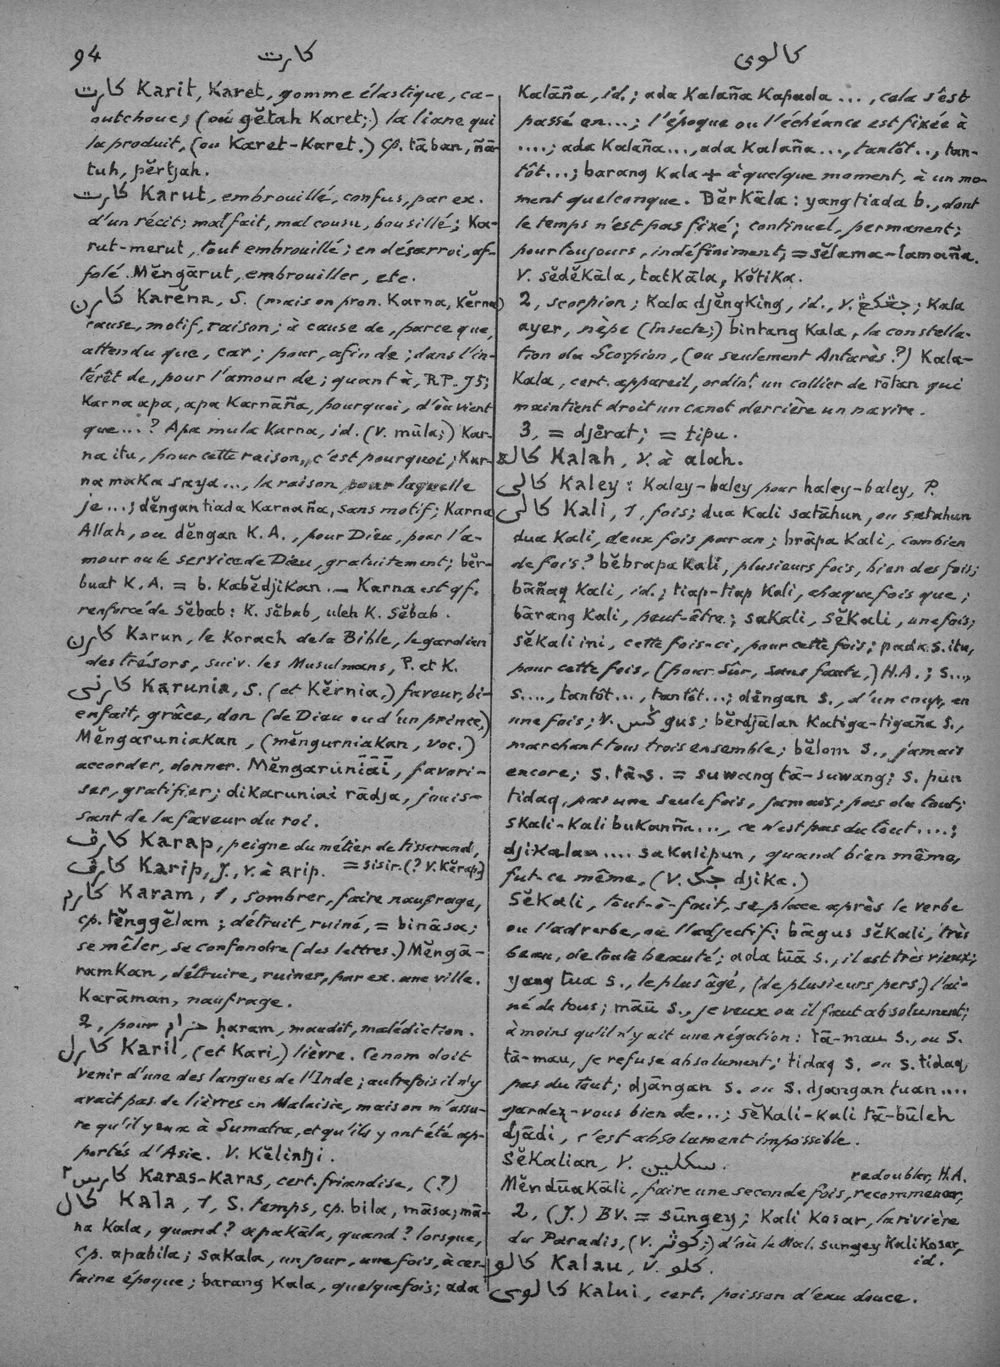 94
كارت
كالوى
كارت Karit, Karet, gomme élastique, ca-
outchouc; (ou gĕtah Karet;) la liane qui
la produit, (ou Karet-Karet.) Cp. tāban, ñā-
tuh, pĕrtjah.
كارت Karut, embrouillé, confus, par ex.
d'un récit; mal fait, mal cousu, bousillé; Ka-
rut-merut, tout embrouillé; en désarroi, af-
folé. Mĕngārut, embrouiller, etc.
كارن Karĕna, S. (mais on pron. Karna, Kĕrna)
cause, motif, raison; à cause de, parce que,
attendu que, car; pour, afin de; dans l'in-
térêt de, pour l'amour de; quant à, R.P. 75;
Karna apa, apa Karnāña, pourquoi, d'où vient
que...? Apa mula Karna, id. (V. mūla;) Kar-
na itu, pour cette raison, c'est pourquoi; Kar-
na maKa saya..., la raison pour laquelle
je...; dĕngan tiada Karnaña, sans motif; Karna
Allah, ou dĕngan K.A., pour Dieu, pour l'a-
mour ou le service de Dieu, gratuitement; bĕr-
buat K.A. = b. KabĕdjiKan. — Karna est qf.
renforcé de Sĕbab: K. sĕbab, uleh K. Sĕbab.
كارن Karun, le Korach de la Bible, le gardien
des trésors, suiv. les Musulmans, P. et K.
كارنى Karunia, S. (et Kĕrnia,) faveur, bi-
enfait, grâce, don (de Dieu ou d'un prince,)
MĕngaruniaKan, (mĕngurniaKan, voc.)
accorder, donner. Mĕngarunīāī, favori-
ser, gratifier; diKaruniai rādja, jouis-
sant de la faveur du roi.
كارڤ Karap, peigne du métier de tisserand,
= sisir. (? V. Kĕrap;)
كارڤ Karip, J., v. à arip.
كارم Karam, 1, sombrer, faire naufrage,
cp. tĕnggĕlam; détruit, ruiné, = bināsa;
se mêler, se confondre (des lettres.) Mĕngā-
ramKan, détruire, ruiner, par ex. une ville.
Karāman, naufrage.
2, pour حرام ḥaram, maudit, malédiction.
كارل Karil, (et Kari,) lièvre. Ce nom doit
venir d'une des langues de l'Inde; autrefois il n'y
avait pas de lièvres en Malaisie, mais on m'assu-
re qu'il y en a à Sumatra, et qu'ils y ont été ap-
portés d'Asie. V. Kĕlintji.
كارس٢ Karas-Karas, cert. friandise, (?)
كال Kala, 1, S. temps, cp. bila, māsa; mā-
na Kala, quand? apaKāla, quand? lorsque,
Cp. apabila; saKala, un jour, une fois, à cer-
taine époque; barang Kala, quelquefois; ada
Kalāña, id.; ada Kalaña Kapada ..., cela s'est
passé en...; l'époque ou l'échéance est fixée à
....; ada Kalaña..., ada Kalaña..., tantôt.., tan-
tôt...; barang Kala + à quelque moment, à un mo-
ment quelconque. BĕrKāla: yang tiada b., dont
le temps n'est pas fixé; continuel, permanent;
pour toujours, indéfiniment; = sĕlama-lamaña.
V. sĕdĕKāla, tatKāla, KŏtiKa.
2, scorpion; Kala djĕngKing, id., v. جڠكڠ; Kala
ayer, nèpe (insecte;) bintang Kala, la constella-
tion du Scorpion, (ou seulement Antarès?) Kala-
Kala, cert. appareil, ordin! un collier de rōtan qui
maintient droit un canot derrière un navire.
3, = djĕrat; = tipu.
كاله Kalah, V. à alah.
كالى Kaley: Kaley-baley pour haley-baley, P.
كالى Kali, 1, fois; dua Kali satāhun, ou satahun
dua Kali, deux fois par an; brāpa Kali, combien
de fois? bĕbrapa Kali, plusieurs fois, bien des fois;
bāñaq Kali, id.; tiap-tiap Kali, chaque fois que;
bārang Kali, peut-être; saKali, SĕKali, une fois;
SĕKali ini, cette fois-ci, pour cette fois; pada s. itu,
pour cette fois, (pour sûr, sans faute,) H.A.; S...,
S...., tantôt..., tantôt...; dĕngan s., d'un coup, en
une fois; V. ڬس gus; bĕrdjālan Katiga-tigaña S.,
marchant tous trois ensemble; bĕlom S., jamais
encore; S. tā-s. = suwang tā-suwang; s. pun
tidaq, pas une seule fois, jamais; pas du tout;
sKali-Kali buKanña..., ce n'est pas du tout ....;
djiKalau .... saKalipun, quand bien même,
fut-ce même. (V. جك djiKa.)
SĕKali, tout-à-fait, se place après le verbe
ou l'adverbe, ou l'adjectif: bāgus SĕKali, très
beau, de toute beauté; ada tūā s., il est très vieux;
yang tua s., le plus âgé, (de plusieurs pers.) l'aî-
né de tous; māū s., je veux ou il faut absolument;
à moins qu'il n'y ait une négation: tā-mau s., ou s.
tā-mau, je refuse absolument; tidaq s. ou s. tidaq,
pas du tout; djāngan s. ou s. djangan tuan....
gardez-vous bien de...; sĕKali-kali tā-būleh
djādi, c'est absolument impossible.
SĕKalian, V. سكلين.
redoubler, H.A.
MĕndūaKāli, faire une seconde fois, recommencer,
2, (J.) BV. = sūngey; Kali Kosar, la rivière
du Paradis, (V. كوثر;) d'où le Mal. sungey KaliKosar,
id.
كالو Kalau, V. كلو.
كالوى Kalui, cert. poisson d'eau douce.